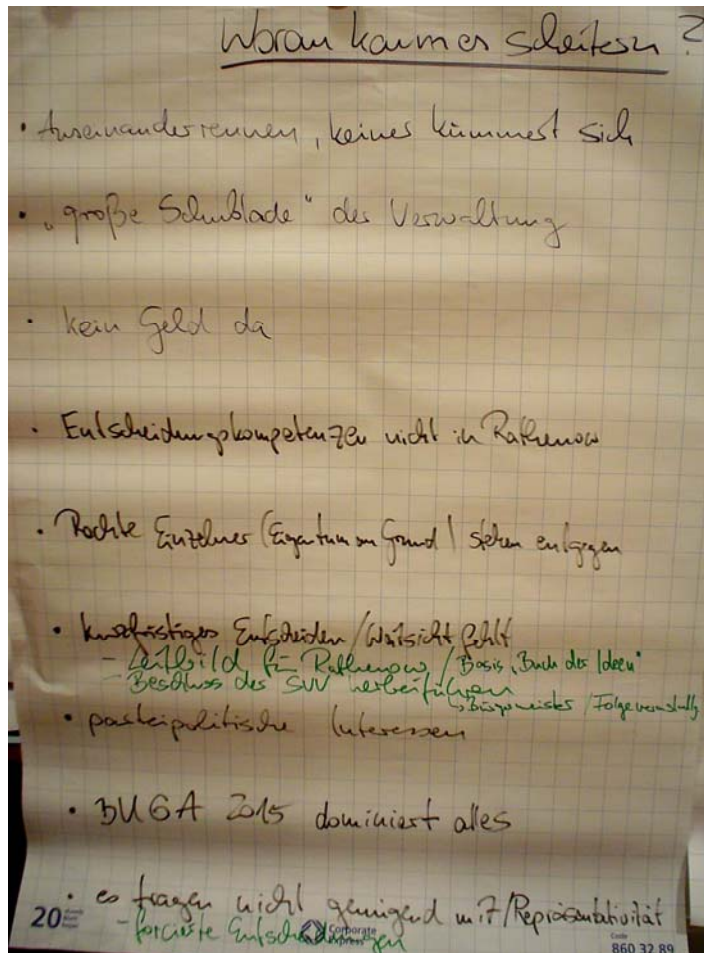 Woran kann es scheitern?
• Auseinanderrennen, keiner kümmert sich
• „große Schublade" der Verwaltung
• kein Geld da
• Entscheidungskompetenzen nicht in Rathenow
• Rechte Einzelner (Eigentum an Grund) stehen entgegen
• kurzfristiges Entscheiden/Weitsicht fehlt
- Leitbild für Rathenow / Basis „Buch der Ideen"
- Beschluss der SVV herbeiführen
↳ Bürgermeister / Folgeveranstaltg
• parteipolitische Interessen
• BUGA 2015 dominiert alles
• es tragen nicht genügend mit/Repräsentativität
- forcierte Entscheidungen
20
Corporate Express
Code
860 32 89